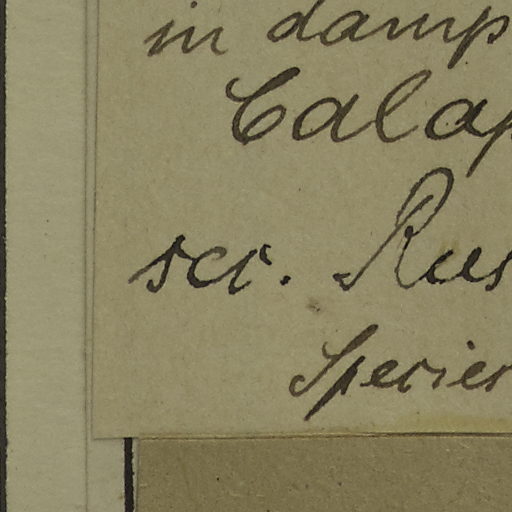 in damp
Calap
scr. Rus
Species